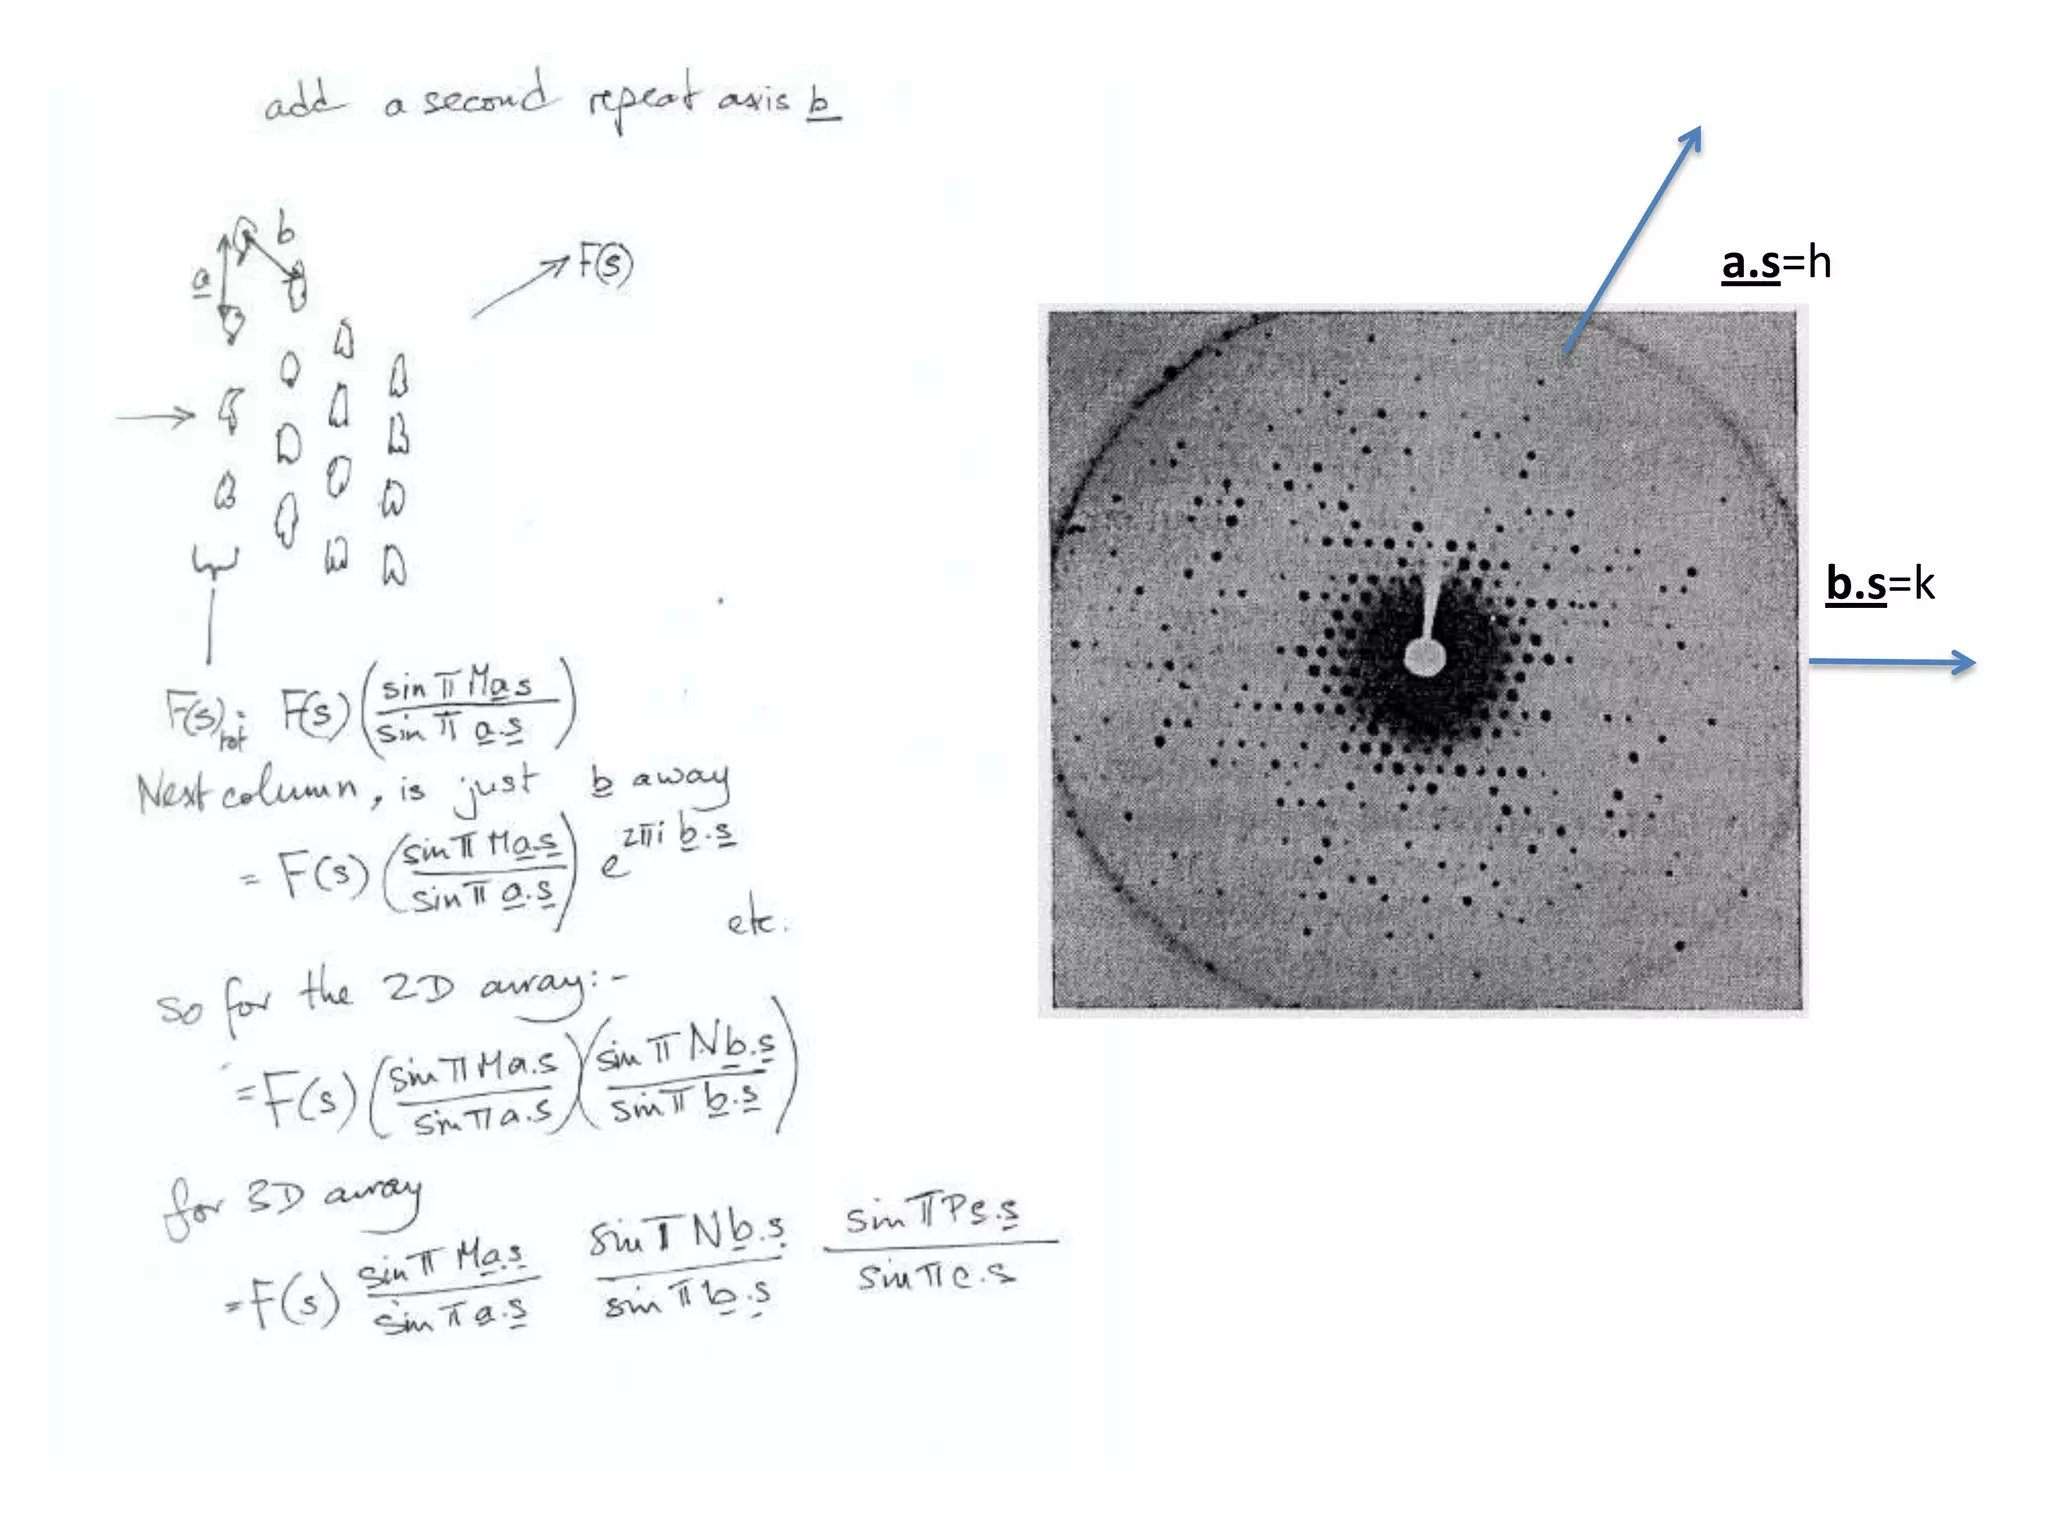 add a second repeat axis b
b
a
F(s)
F(s)tot = F(s) (sin π Ma.s / sin π a.s)
Next column, is just b away
= F(s) (sin π Ma.s / sin π a.s) e^2πi b.s
etc.
So for the 2D array:-
= F(s) (sin π Ma.s / sin π a.s) (sin π Nb.s / sin π b.s)
for 3D array
= F(s) sin π Ma.s / sin π a.s sin π Nb.s / sin π b.s sin π Pc.s / sin π c.s
a.s=h
b.s=k